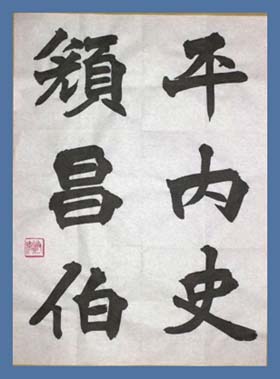 平内史
頴昌伯